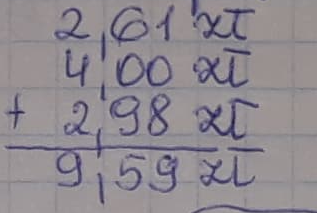 2,61 zł
4,00 zł
+ 2,98 zł
9,59 zł